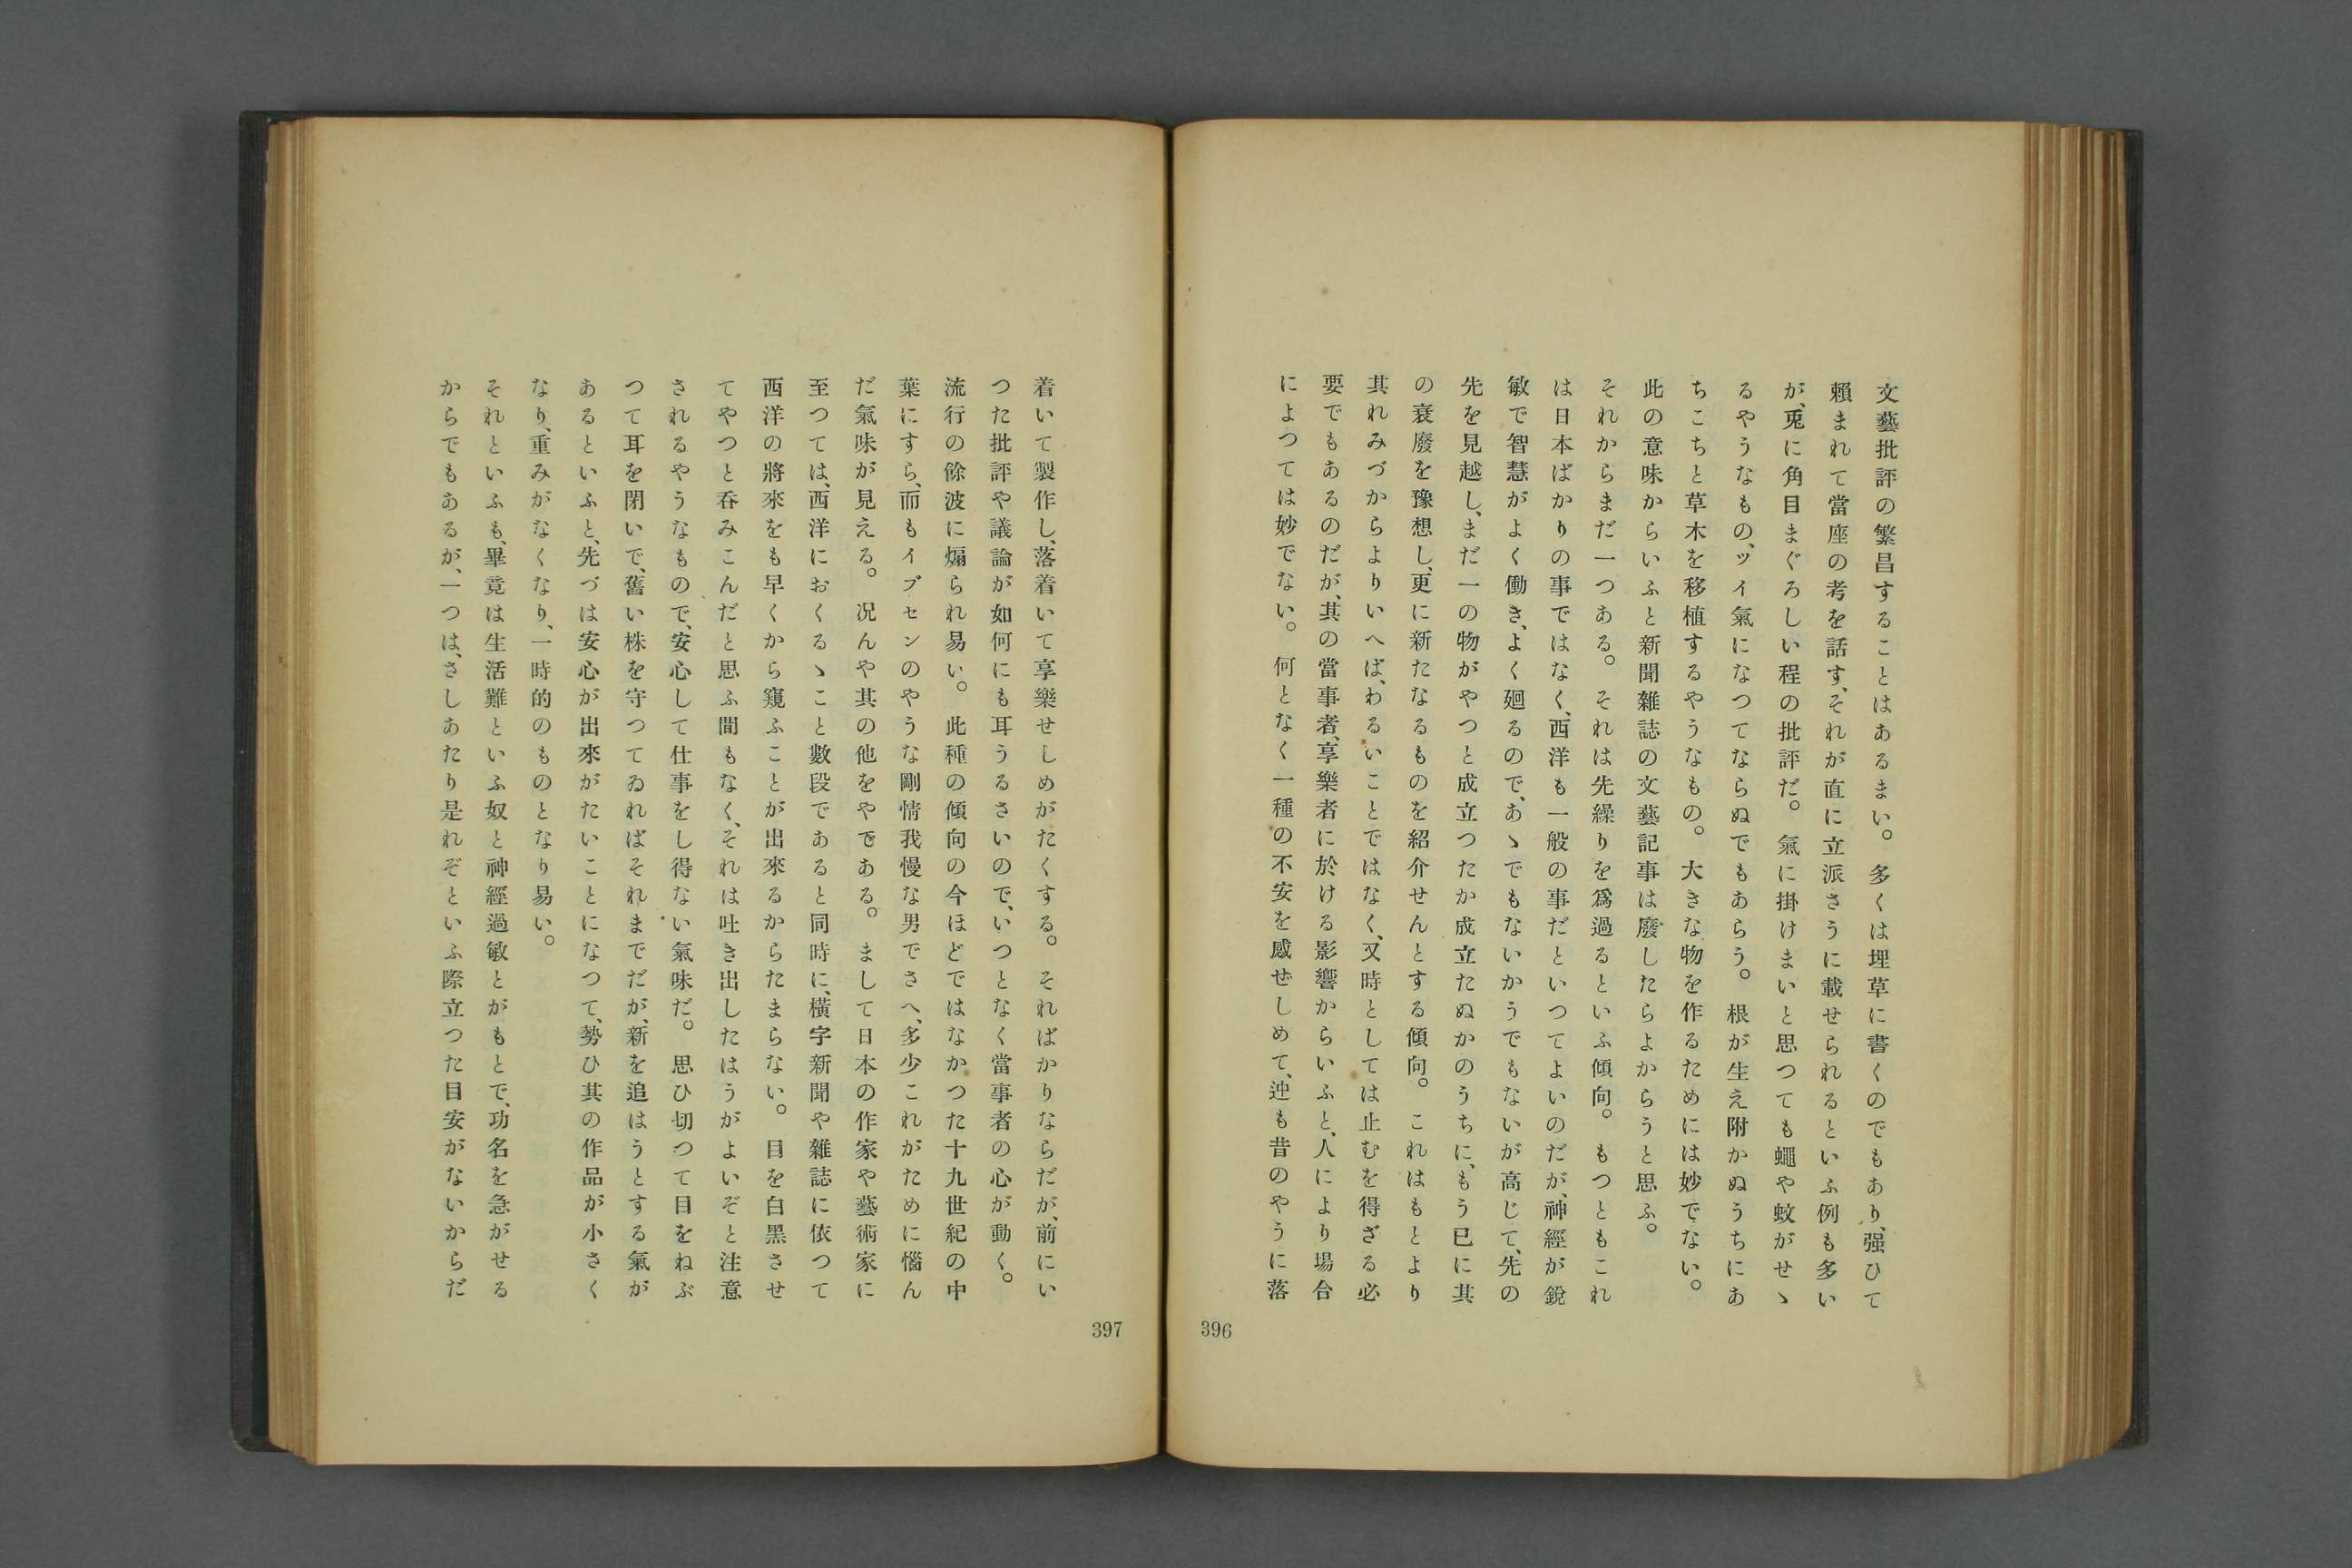 文藝批評の繁昌することはあるまい。多くは埋草に書くのでもあり、强ひて
賴まれて當座の考を話す、それが直に立派さうに載せられるといふ例も多い
が、兎に角目まぐろしい程の批評だ。氣に掛けまいと思つても蠅や蚊がせゝ
るやうなもの、ツイ氣になつてならぬでもあらう。根が生え附かぬうちにあ
ちこちと草木を移植するやうなもの。大きな物を作るためには妙でない。
此の意味からいふと新聞雜誌の文藝記事は廢したらよからうと思ふ。
それからまだ一つある。それは先繰りを爲過るといふ傾向。もつともこれ
は日本ばかりの事ではなく、西洋も一般の事だといつてよいのだが、神經が鋭
敏で智慧がよく働き、よく廻るので、あゝでもないかうでもないが高じて、先の
先を見越し、まだ一の物がやつと成立つたか成立たぬかのうちに、もう已に其
の衰廢を豫想し、更に新たなるものを紹介せんとする傾向。これはもとより
其れみづからよりいへば、わるいことではなく、又時としては止むを得ざる必
要でもあるのだが、其の當事者、享樂者に於ける影響からいふと、人により場合
によつては妙でない。何となく一種の不安を感ぜしめて、迚も昔のやうに落
396
着いて製作し、落着いて享樂せしめがたくする。そればかりならだが、前にい
つた批評や議論が如何にも耳うるさいので、いつとなく當事者の心が動く。
流行の餘波に煽られ易い。此種の傾向の今ほどではなかつた十九世紀の中
葉にすら、而もイブセンのやうな剛情我慢な男でさへ、多少これがために惱ん
だ氣味が見える。况んや其の他をやである。まして日本の作家や藝術家に
至つては、西洋におくるゝこと數段であると同時に、橫字新聞や雜誌に依つて
西洋の將來をも早くから窺ふことが出來るからたまらない。目を白黑させ
てやつと呑みこんだと思ふ間もなく、それは吐き出したはうがよいぞと注意
されるやうなもので、安心して仕事をし得ない氣味だ。思ひ切つて目をねぶ
つて耳を閉いで、舊い株を守つてゐればそれまでだが、新を追はうとする氣が
あるといふと、先づは安心が出來がたいことになつて、勢ひ其の作品が小さく
なり、重みがなくなり、一時的のものとなり易い。
それといふも、畢竟は生活難といふ奴と神經過敏とがもとで、功名を急がせる
からでもあるが、一つは、さしあたり是れぞといふ際立つた目安がないからだ
397